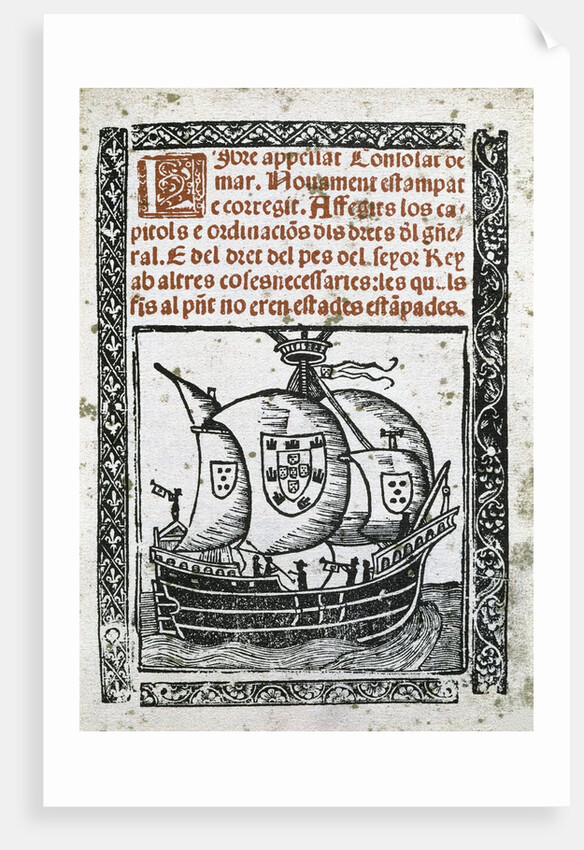 Lybre appellat Consolat de
mar. Nouament estampat
e corregit. Affegits los ca-
pitols e ordinaciōs dls drets dl gñe-
ral. E del dret del pes del senyor Rey
ab altres coses necessaries: les quals
fis al pñt no eren estades estāpades.